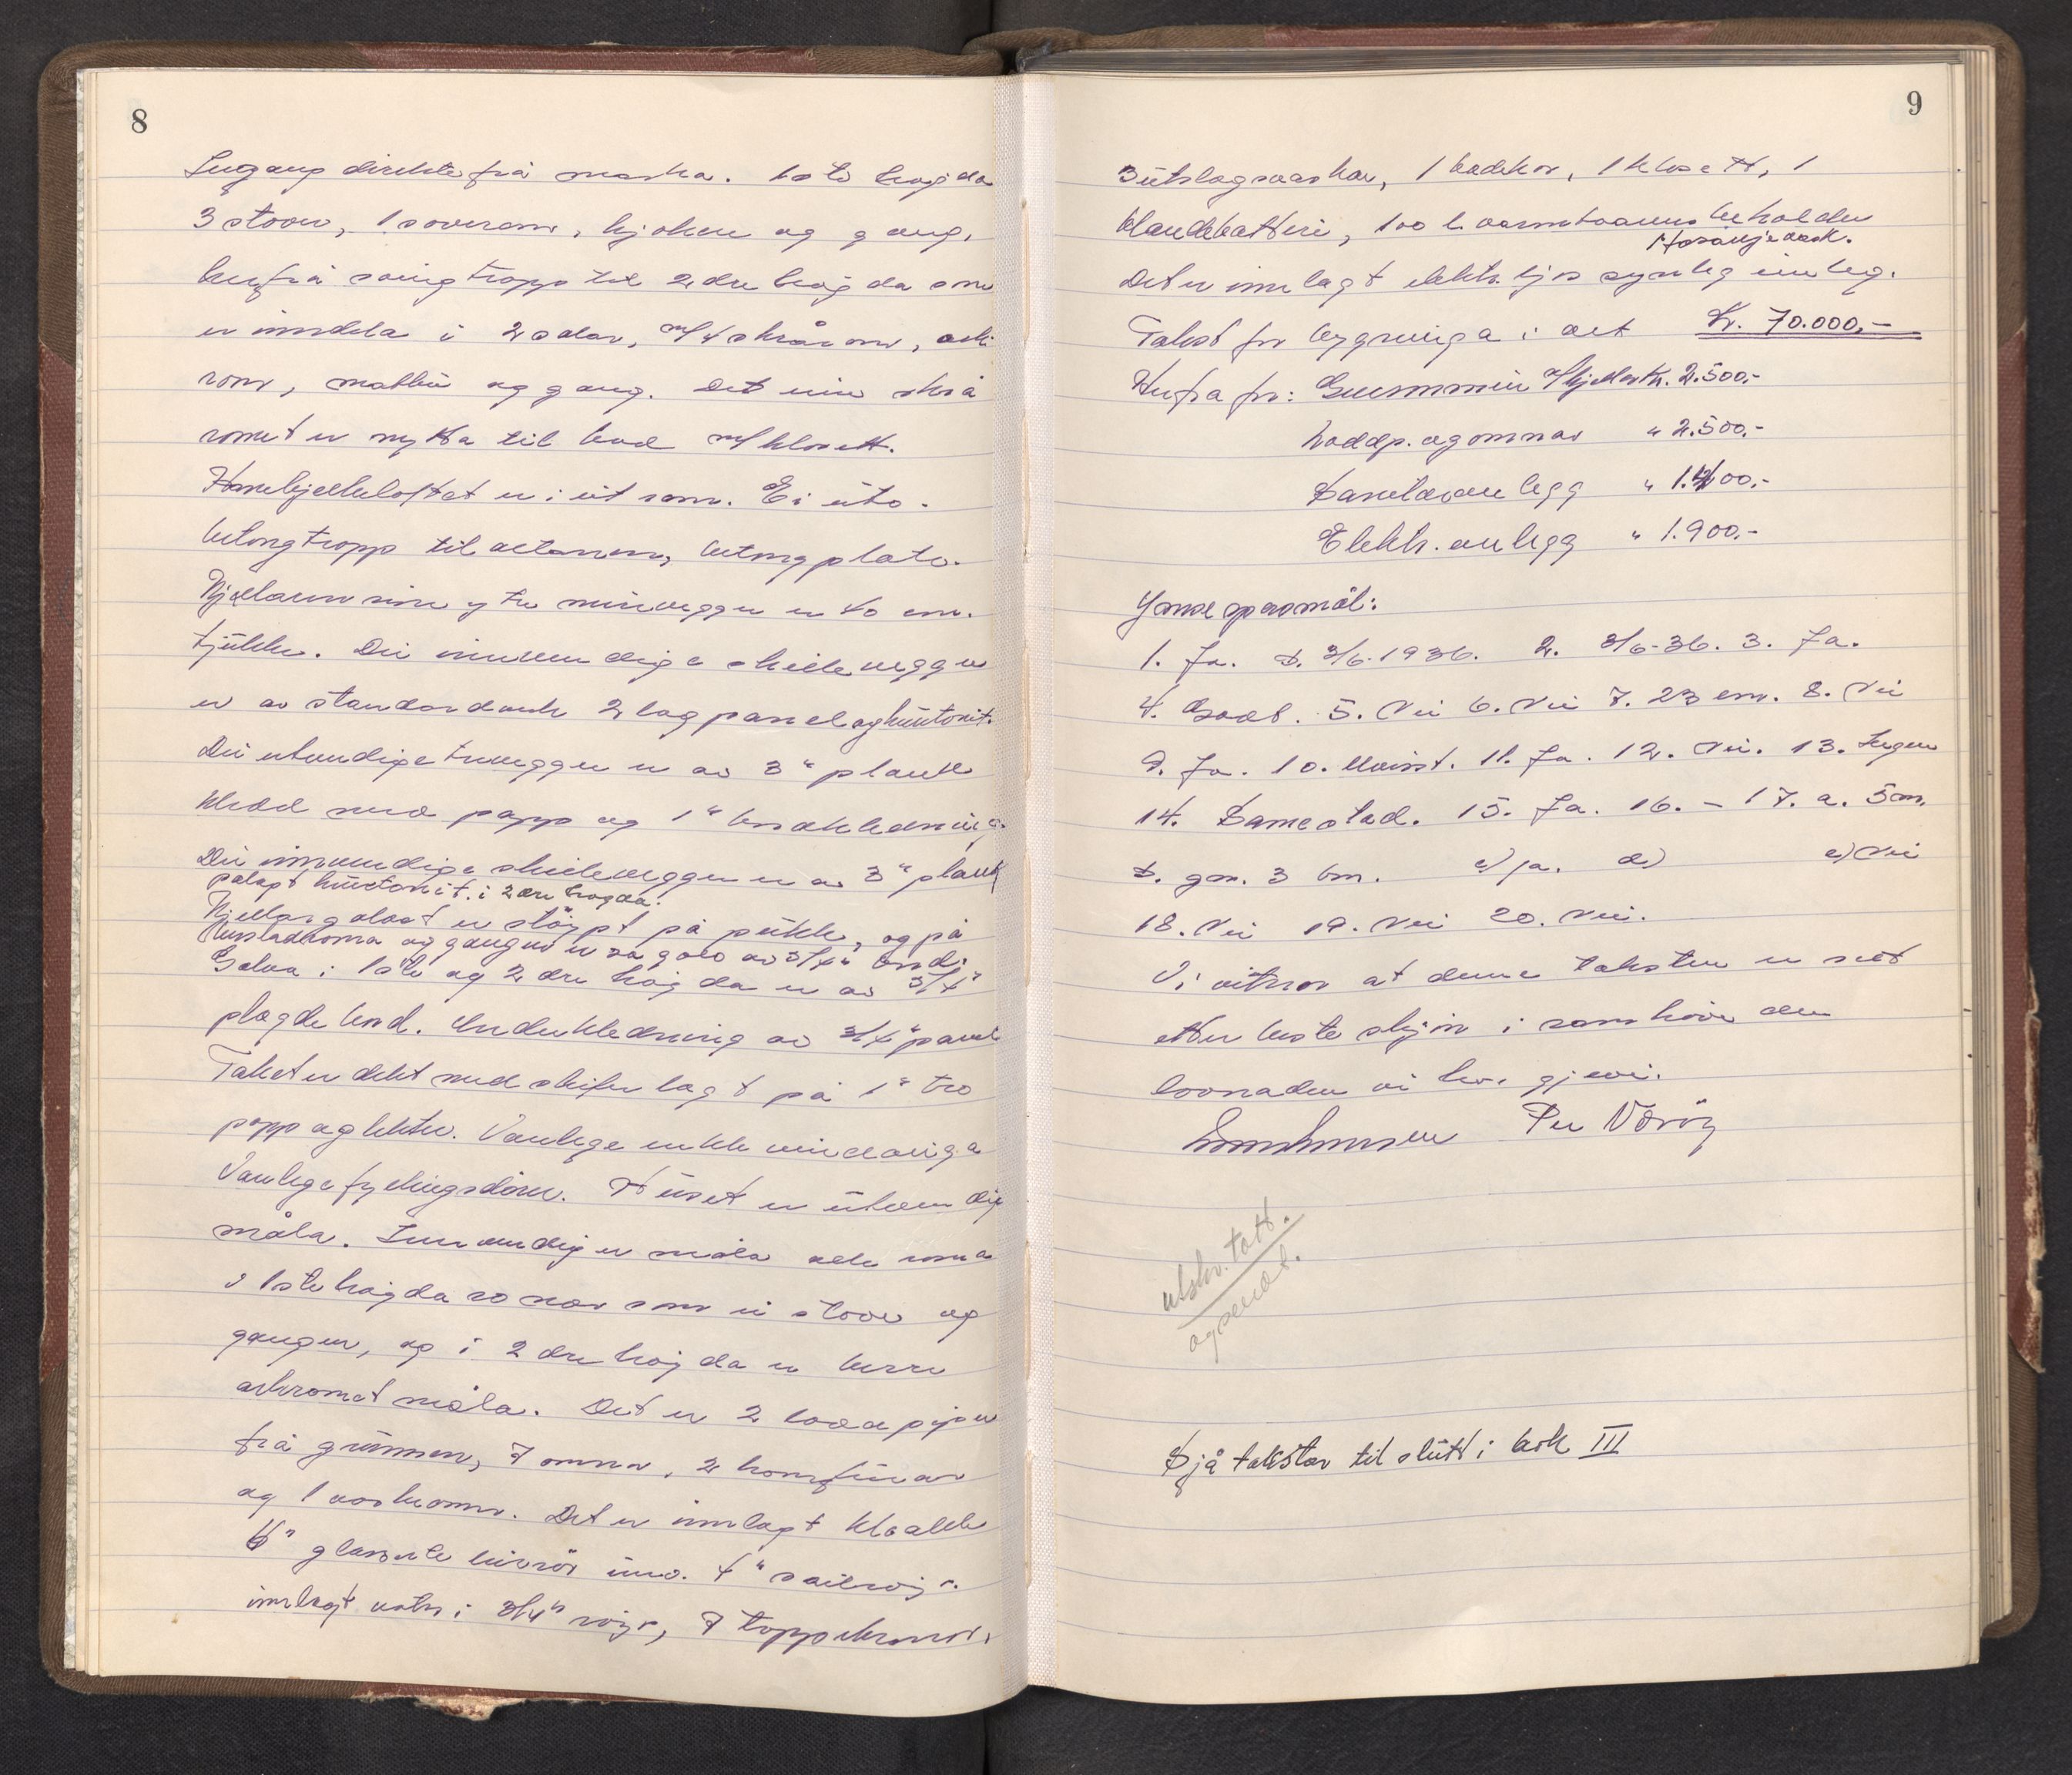 8
Ingang direkte frå marka. 1ste høgda
3 stover, 1 soverom, kjøken og gang.
herfrå svingtropp til 2dre høgda som
er inndela i 2 salar, m/4 skrårom, ark-
rom, matbu og gang. Det eine skrå
romet er nytta til bad m/klosett.
Hanebjelkeloftet er i eit rom. Ei utv.
betongtropp til altanen, betongplate.
Kjellaren sine ytre murvegger er 40 cm.
tjukke. Dei innvendige skillevegger
er av standardverk 2 lag panel og huntonit.
Dei utvendige trevegger er av 3" plank
kledd med papp og 1" bordkledning.
Dei innvendige skillevegger er av 3" plank
pålagt huntonit i 2dre høgda.
Kjellargolvet er støypt på pukk, og på
verstadroma og gangen er så golv av 5/4" bord.
Golva i 1ste og 2dre høgda er av 5/4"
pløgde bord. Underkledning av 3/4" panel
Taket er dekt med skifer lagt på 1" tro
papp og lekter. Vanlege enkle vindauga
Vanlege fyllingsdører. Huset er utvendig
måla. Innvendig er måla alle roma
i 1ste høgda so nær som ei stove og
gangen, og i 2dre høgda er berre
arkromet måla. Det er 2 loddpiper
frå grunnen, 7 omnar, 2 komfurar
og 1 vaskeomn. Det er innlagt kloakk
6" glasserte leirrør innv. 4" soilrøyr.
innlagt vatn i 3/4" røyr, 7 tappekranar,
9
3 utslagsvaskar, 1 badekar, 1 klosett, 1
blandebatteri, 100 l. varmtvannsbeholder
1 fosangevask.
Det er innlagt elektr. ljos synleg innlegg.
Takst for bygninga i alt Kr. 70.000,-
Herfra for: Grunnmur m/kjeller Kr. 2.500.-
Loddp. og omnar " 2.500.-
Sanitæranlegg " 1.400.-
Elektr. anlegg " 1.900.-
Ymse spørsmål:
1. Ja. d. 3/6-1936. 2. 3/6-36. 3. Ja.
4. Godt. 5. Nei 6. Nei 7. 23 cm. 8. Nei
9. Ja. 10. Uvisst. 11. Ja. 12. Nei. 13. Ingen
14. Samestad. 15. Ja. 16. - 17. a. 5 m.
b. gm. 3 bm. c) ja. d) e) Nei
18. Nei 19. Nei 20. Nei.
Vi vitnar at denne taksten er sett
etter beste skjøn i samhøve den
lovnaden vi har gjeve.
Per Værøy
utskr. tatt.
og sendt.
Sjå takstar til slutt i bok III